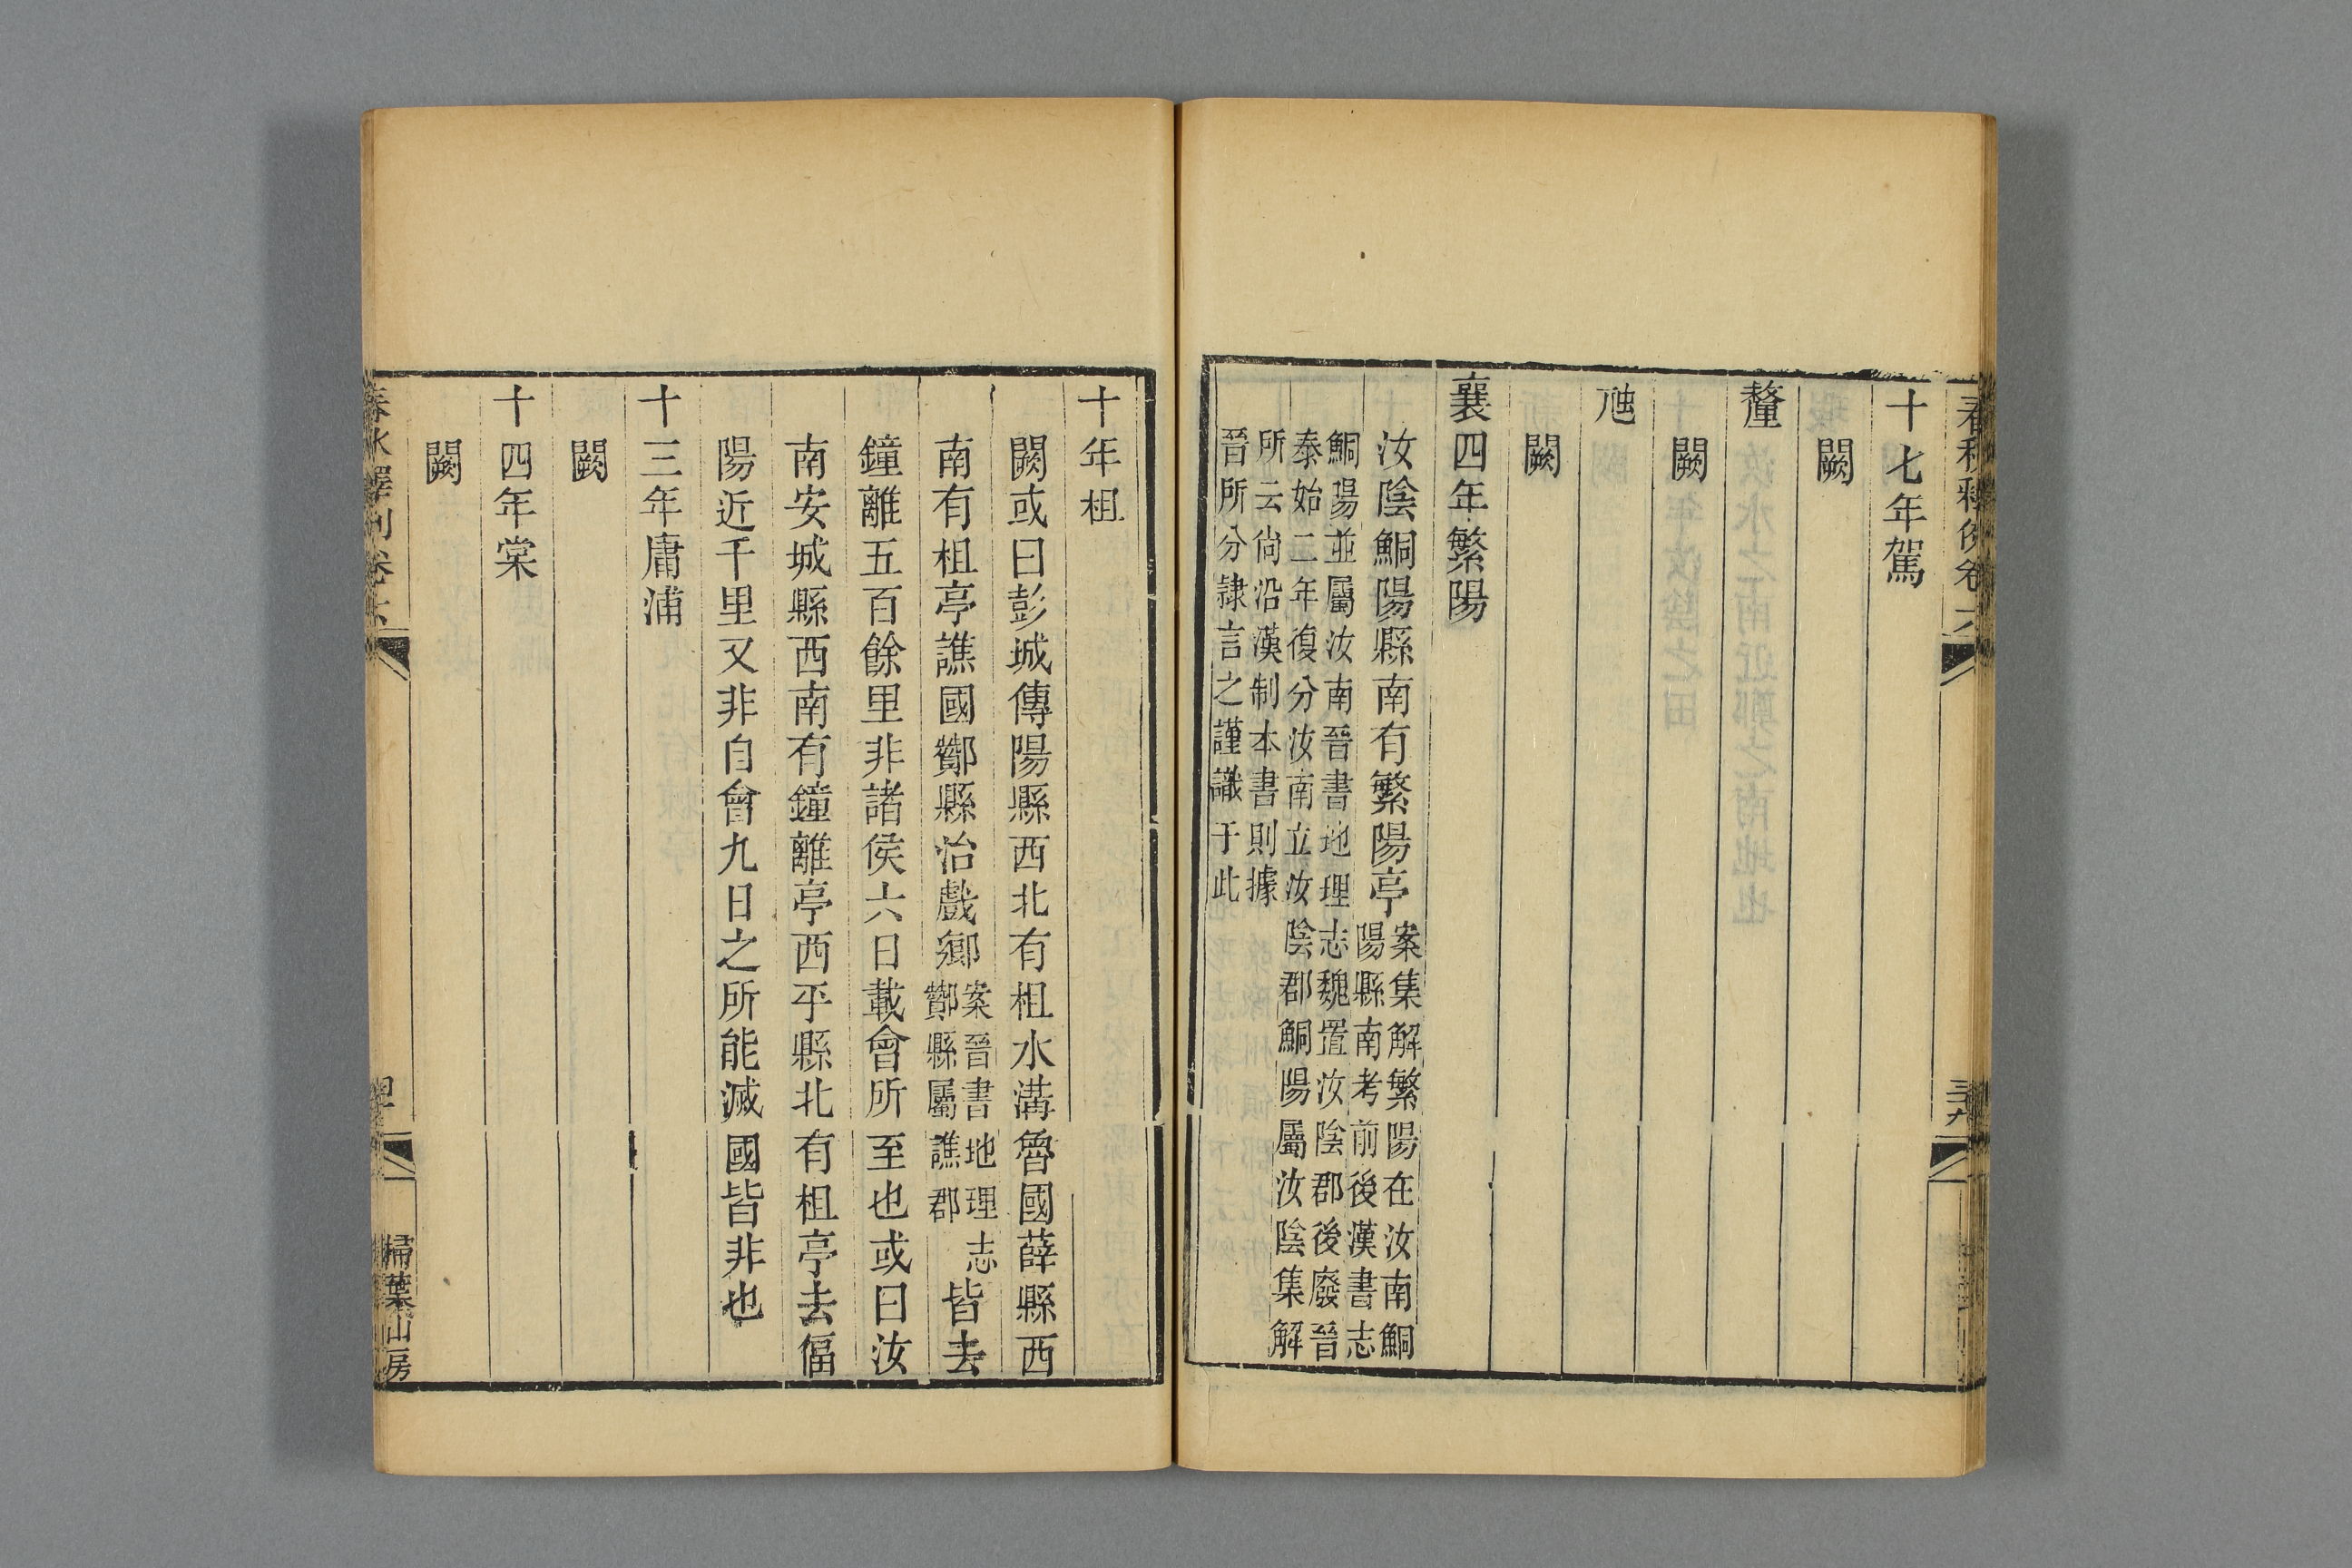 春秋釋例卷六
三九
十七年駕
闕
釐
闕
虺
闕
襄四年繁陽
汝陰鮦陽縣南有繁陽亭
案集解繁陽在汝南鮦
陽縣南考前後漢書志
鮦陽並屬汝南晉書地理志魏置汝陰郡後廢晉
泰始二年復分汝南立汝陰郡鮦陽屬汝陰集解
所云尙沿漢制本書則據
晉所分隸言之謹識于此
十年柤
闕或曰彭城傅陽縣西北有柤水溝魯國薛縣西
南有柤亭譙國酇縣治戲鄉
案晉書地理志
酇縣屬譙郡
皆去
鐘離五百餘里非諸侯六日載會所至也或曰汝
南安城縣西南有鐘離亭西平縣北有柤亭去偪
陽近千里又非自會九日之所能滅國皆非也
十三年庸浦
闕
十四年棠
闕
春秋釋例卷六
掃葉山房